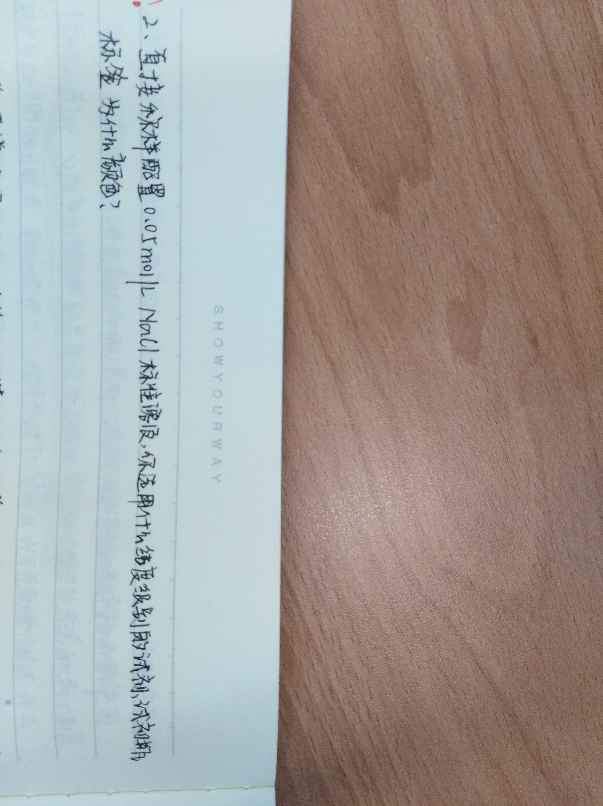 2、直接称样配置0.05mol/L NaCl标准溶液,你选用什么纯度级别的试剂,试剂瓶
标签为什么颜色?
SHOWYOURWAY